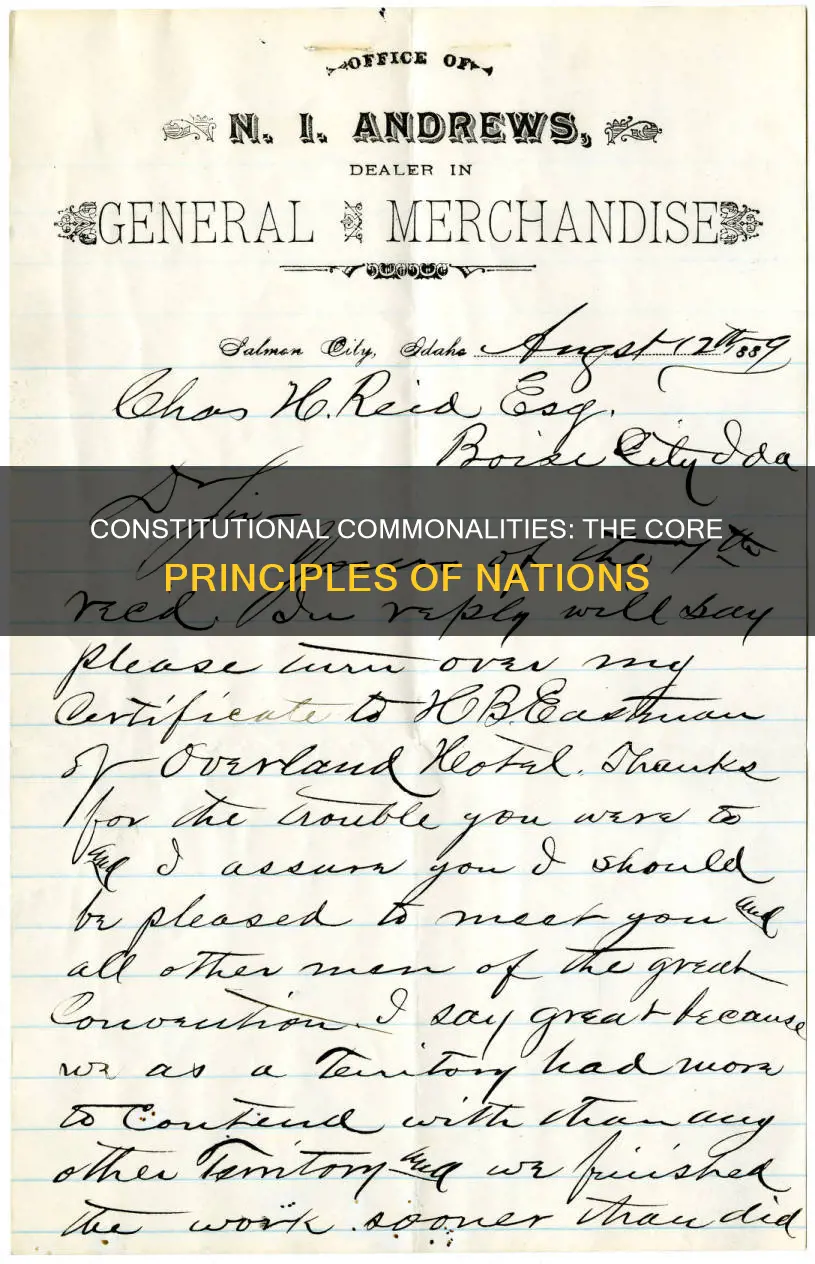 OFFICE OF
N. I. ANDREWS,
DEALER IN
GENERAL MERCHANDISE
Salmon City, Idaho Augst 12th 1889
Chas H. Reid Esq.
Boise City Ida
D Sir
CONSTITUTIONAL COMMONALITIES: THE CORE
Yours of the 7th
PRINCIPLES OF NATIONS
recd. In reply will say
please turn over my
Certificate to H B. Eastman
of Overland Hotel. Thanks
for the trouble you were to
and I assure you I should
be pleased to meet you and
all other men of the great
Convention. I say great because
we as a Territory had more
to Contend with than any
other Territory and we finished
the work sooner than did